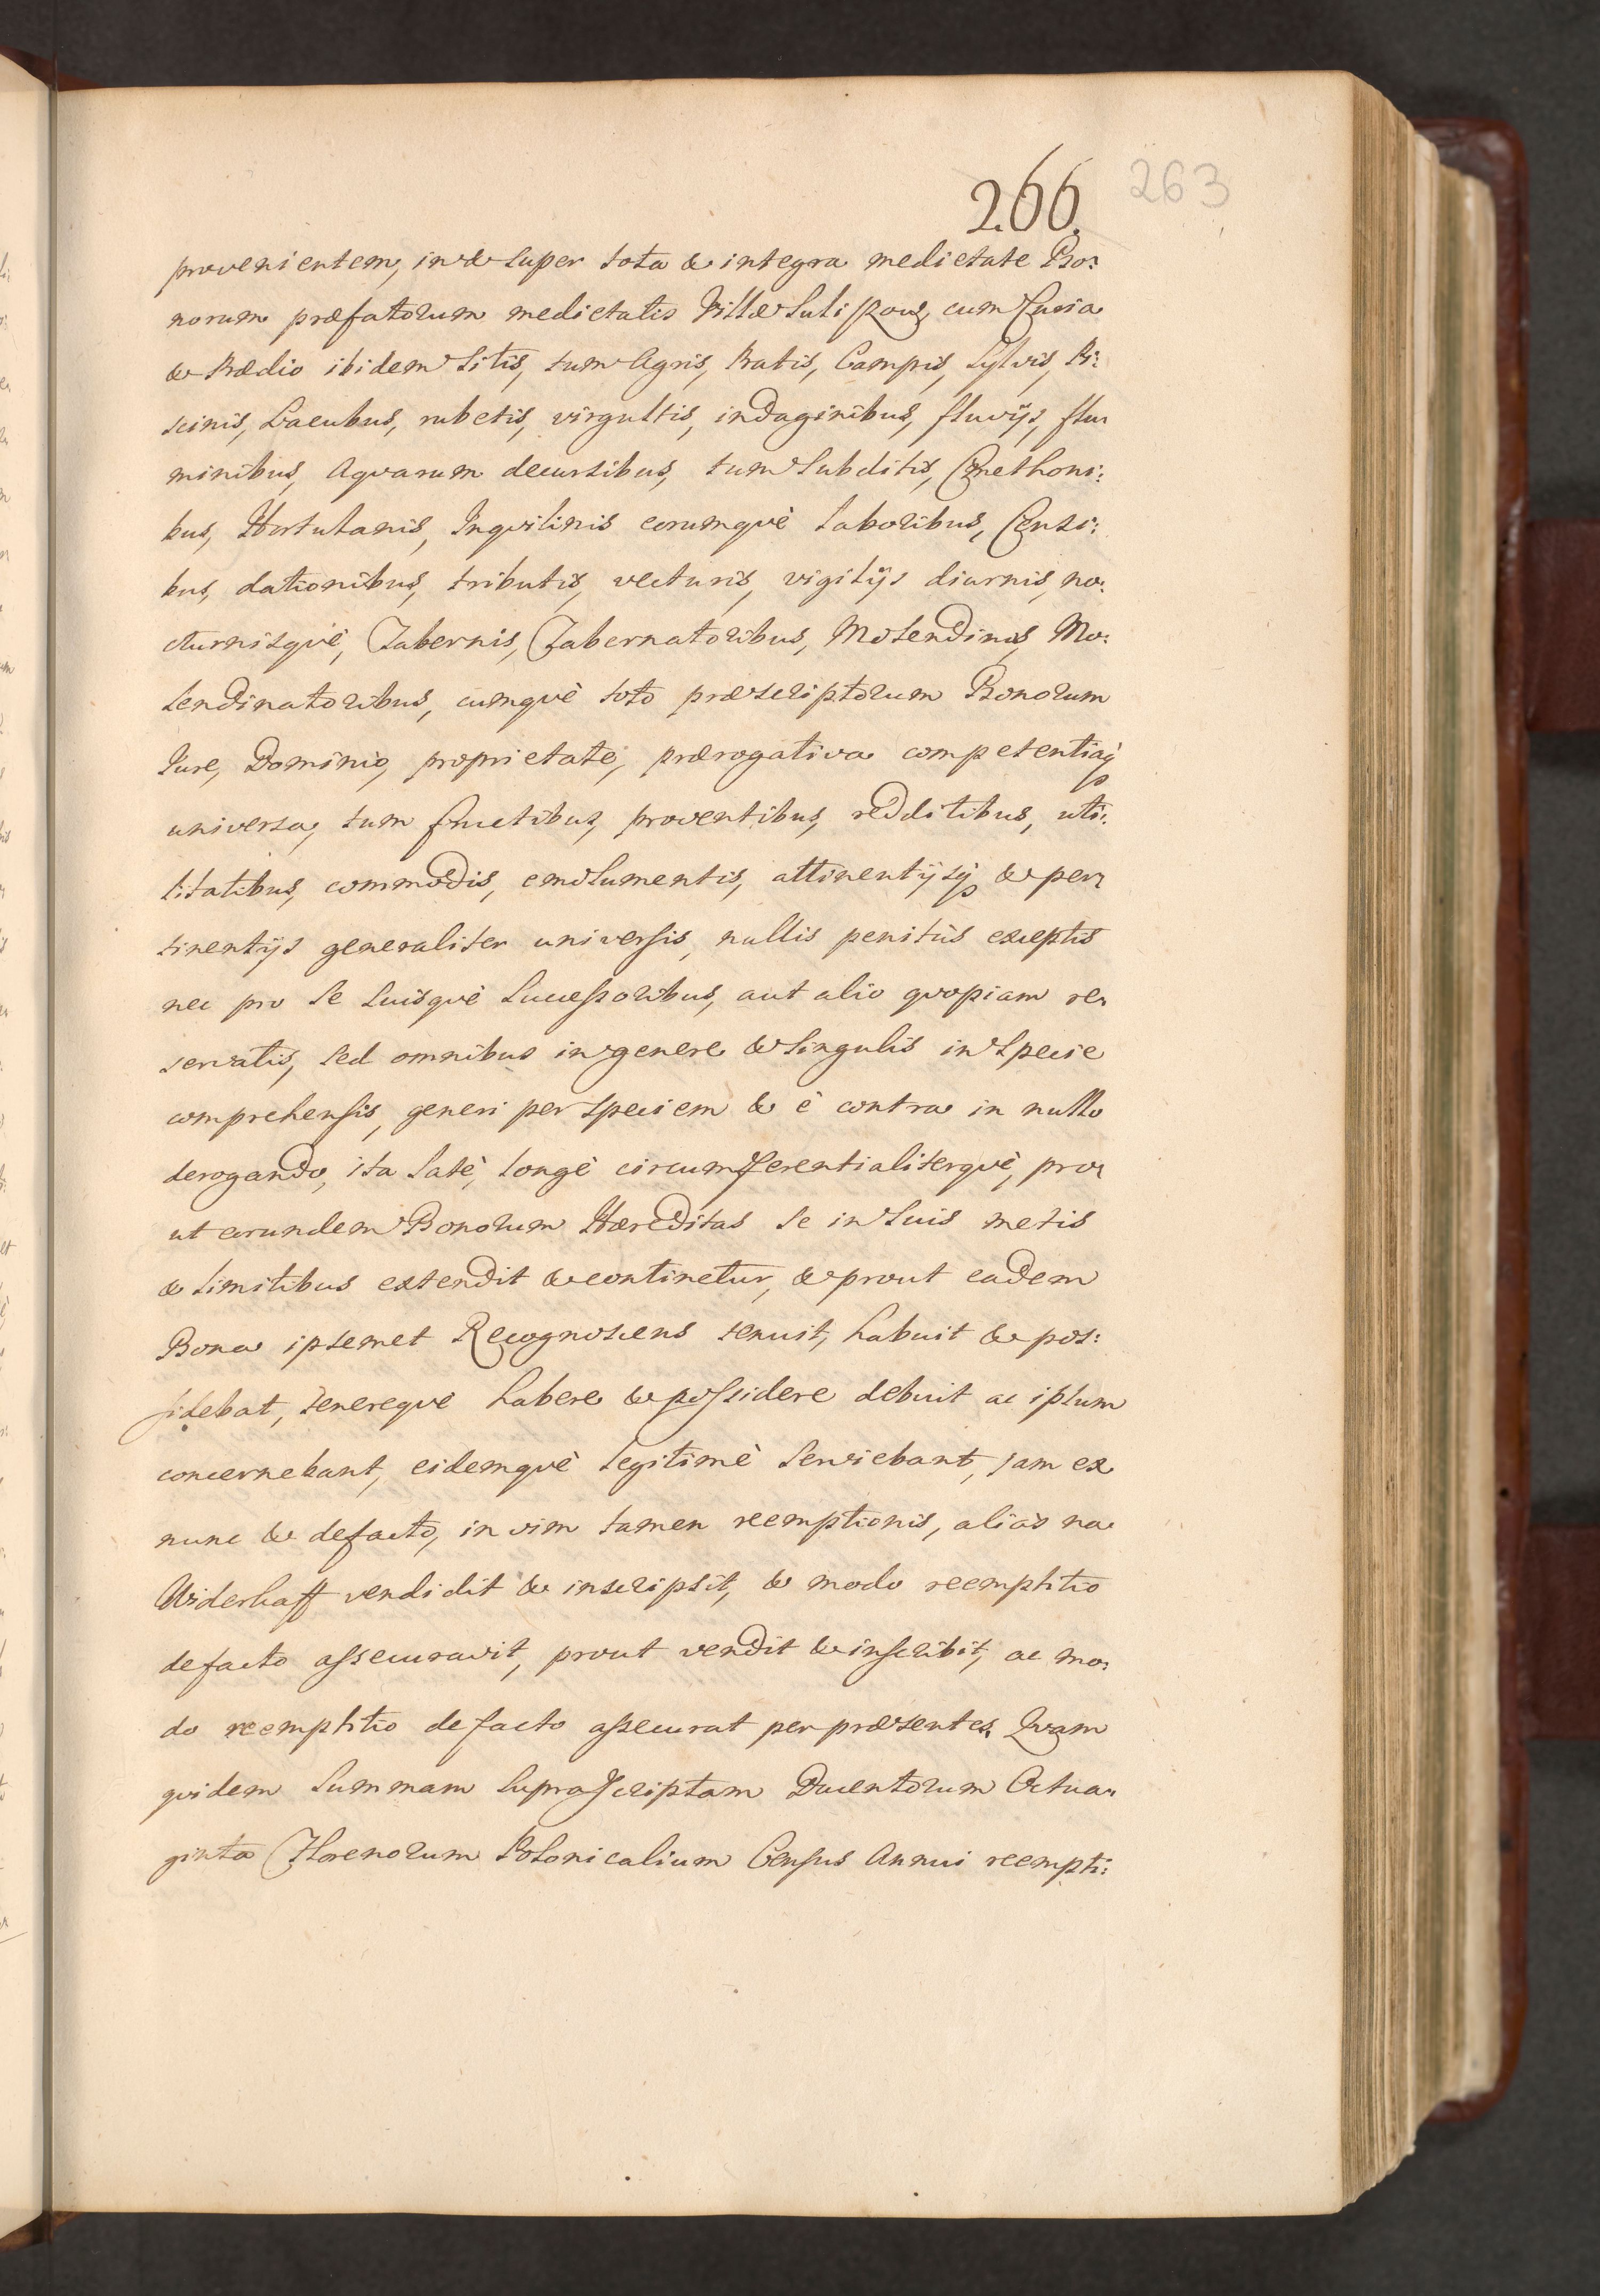 266.
263
provenientem, in & super tota & integra medietate Bo:
norum præfatorum medietatis Villæ cum Curia
& Prædio ibidem sitis, tum Agris, Pratis, Campis, Sylvis, Pi:
scinis, Lacubus, rubetis, virgultis, indaginibus, fluvijs, flu:
minibus, Aqvarum decursibus, tum Subditis, Cmethoni:
bus, Hortulanis, Inqvilinis eorumqvè laboribus, Censi:
bus, dationibus, tributis, vecturis, vigilijs diurnis, no:
cturnisqvè, Tabernis, Tabernatoribus, Molendinis, Mo:
lendinatoribus, cumqvè toto præscriptorum Bonorum
Jure, Dominio, proprietate, prærogativa competentiaq
universa, tum fructibus, proventibus, redditibus, uti:
litatibus, commodis, emolumentis, attinentijsq & per:
tinentijs generaliter universis, nullis penitùs exceptis
nec pro se suisqvè Successoribus, aut alio qvopiam re:
servatis, sed omnibus in genere & singulis in specie
comprehensis, generi per speciem & è contra in nullo
derogando, ita latè, longè circumferentialiterqvè, pro:
ut eorundem Bonorum Hæreditas se in suis metis
& limitibus extendit & continetur, & prout eadem
Bona ipsemet Recognoscens tenuit, habuit & pos:
sidebat, tenereqve habere & possidere debuit ac ipsum
concernebant, eidemqvè legitimè serviebant, jam ex
nunc & defacto, in vim tamen reemptionis, alias na
Widerkaff vendidit & inscripsit, & modo reemptitio
defacto assecuravit, prout vendit & inscribit, ac mo:
do reemptitio defacto assecurat per præsentes. Qvam
qvidem Summam suprascriptam Ducentorum Octua:
ginta Florenorum Polonicalium Census Annui reempti: